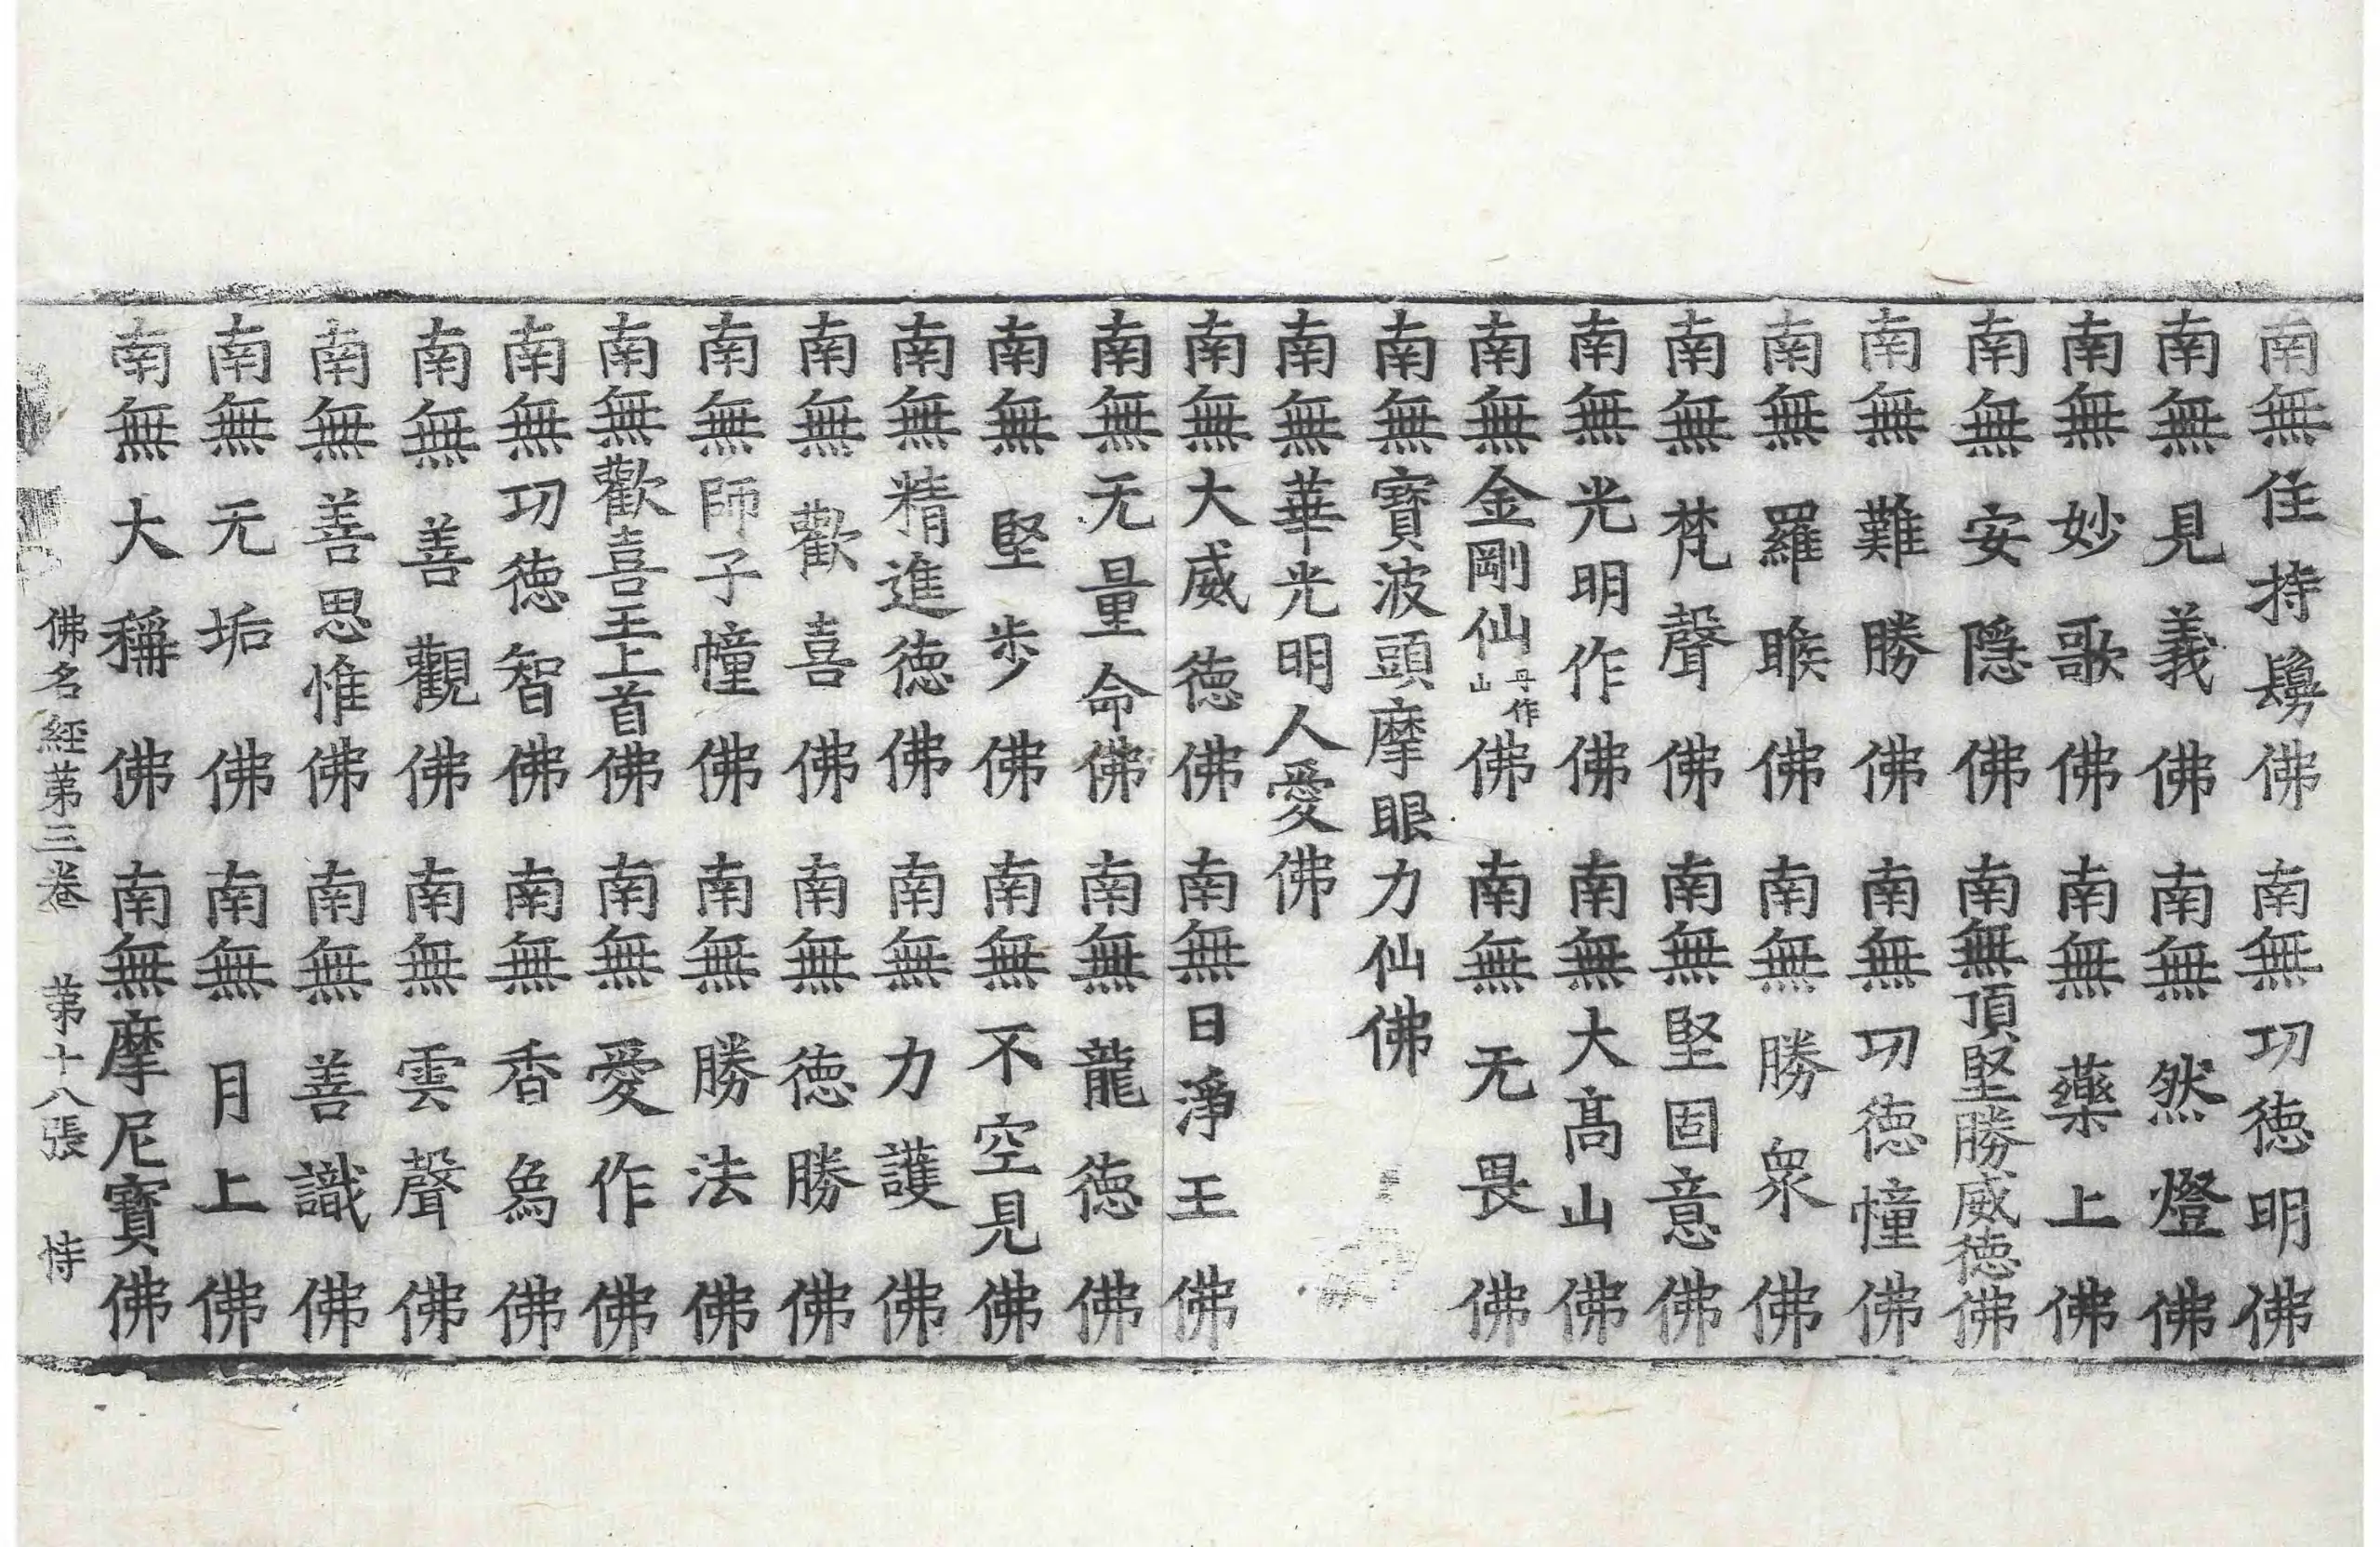 南無住持髣佛南無功德明佛
南無見義佛南無然燈佛
南無妙歌佛南無藥上佛
南無安隱佛南無頂堅勝威德佛
南無難勝佛南無功德幢佛
南無羅睺佛南無勝衆佛
南無梵聲佛南無堅固意佛
南無光明作佛南無大高山佛
南無金剛仙丹作山佛南無无畏佛
南無寶波頭摩眼力仙佛
南無華光明人愛佛
南無大威德佛南無日淨王佛
南無无量命佛南無龍德佛
南無堅步佛南無不空見佛
南無精進德佛南無力護佛
南無歡喜佛南無德勝佛
南無師子幢佛南無勝法佛
南無歡喜王上首佛南無愛作佛
南無功德智佛南無香爲佛
南無善觀佛南無雲聲佛
南無善思惟佛南無善識佛
南無无垢佛南無月上佛
南無大稱佛南無摩尼寶佛
佛名經第三卷 第十八張 恃